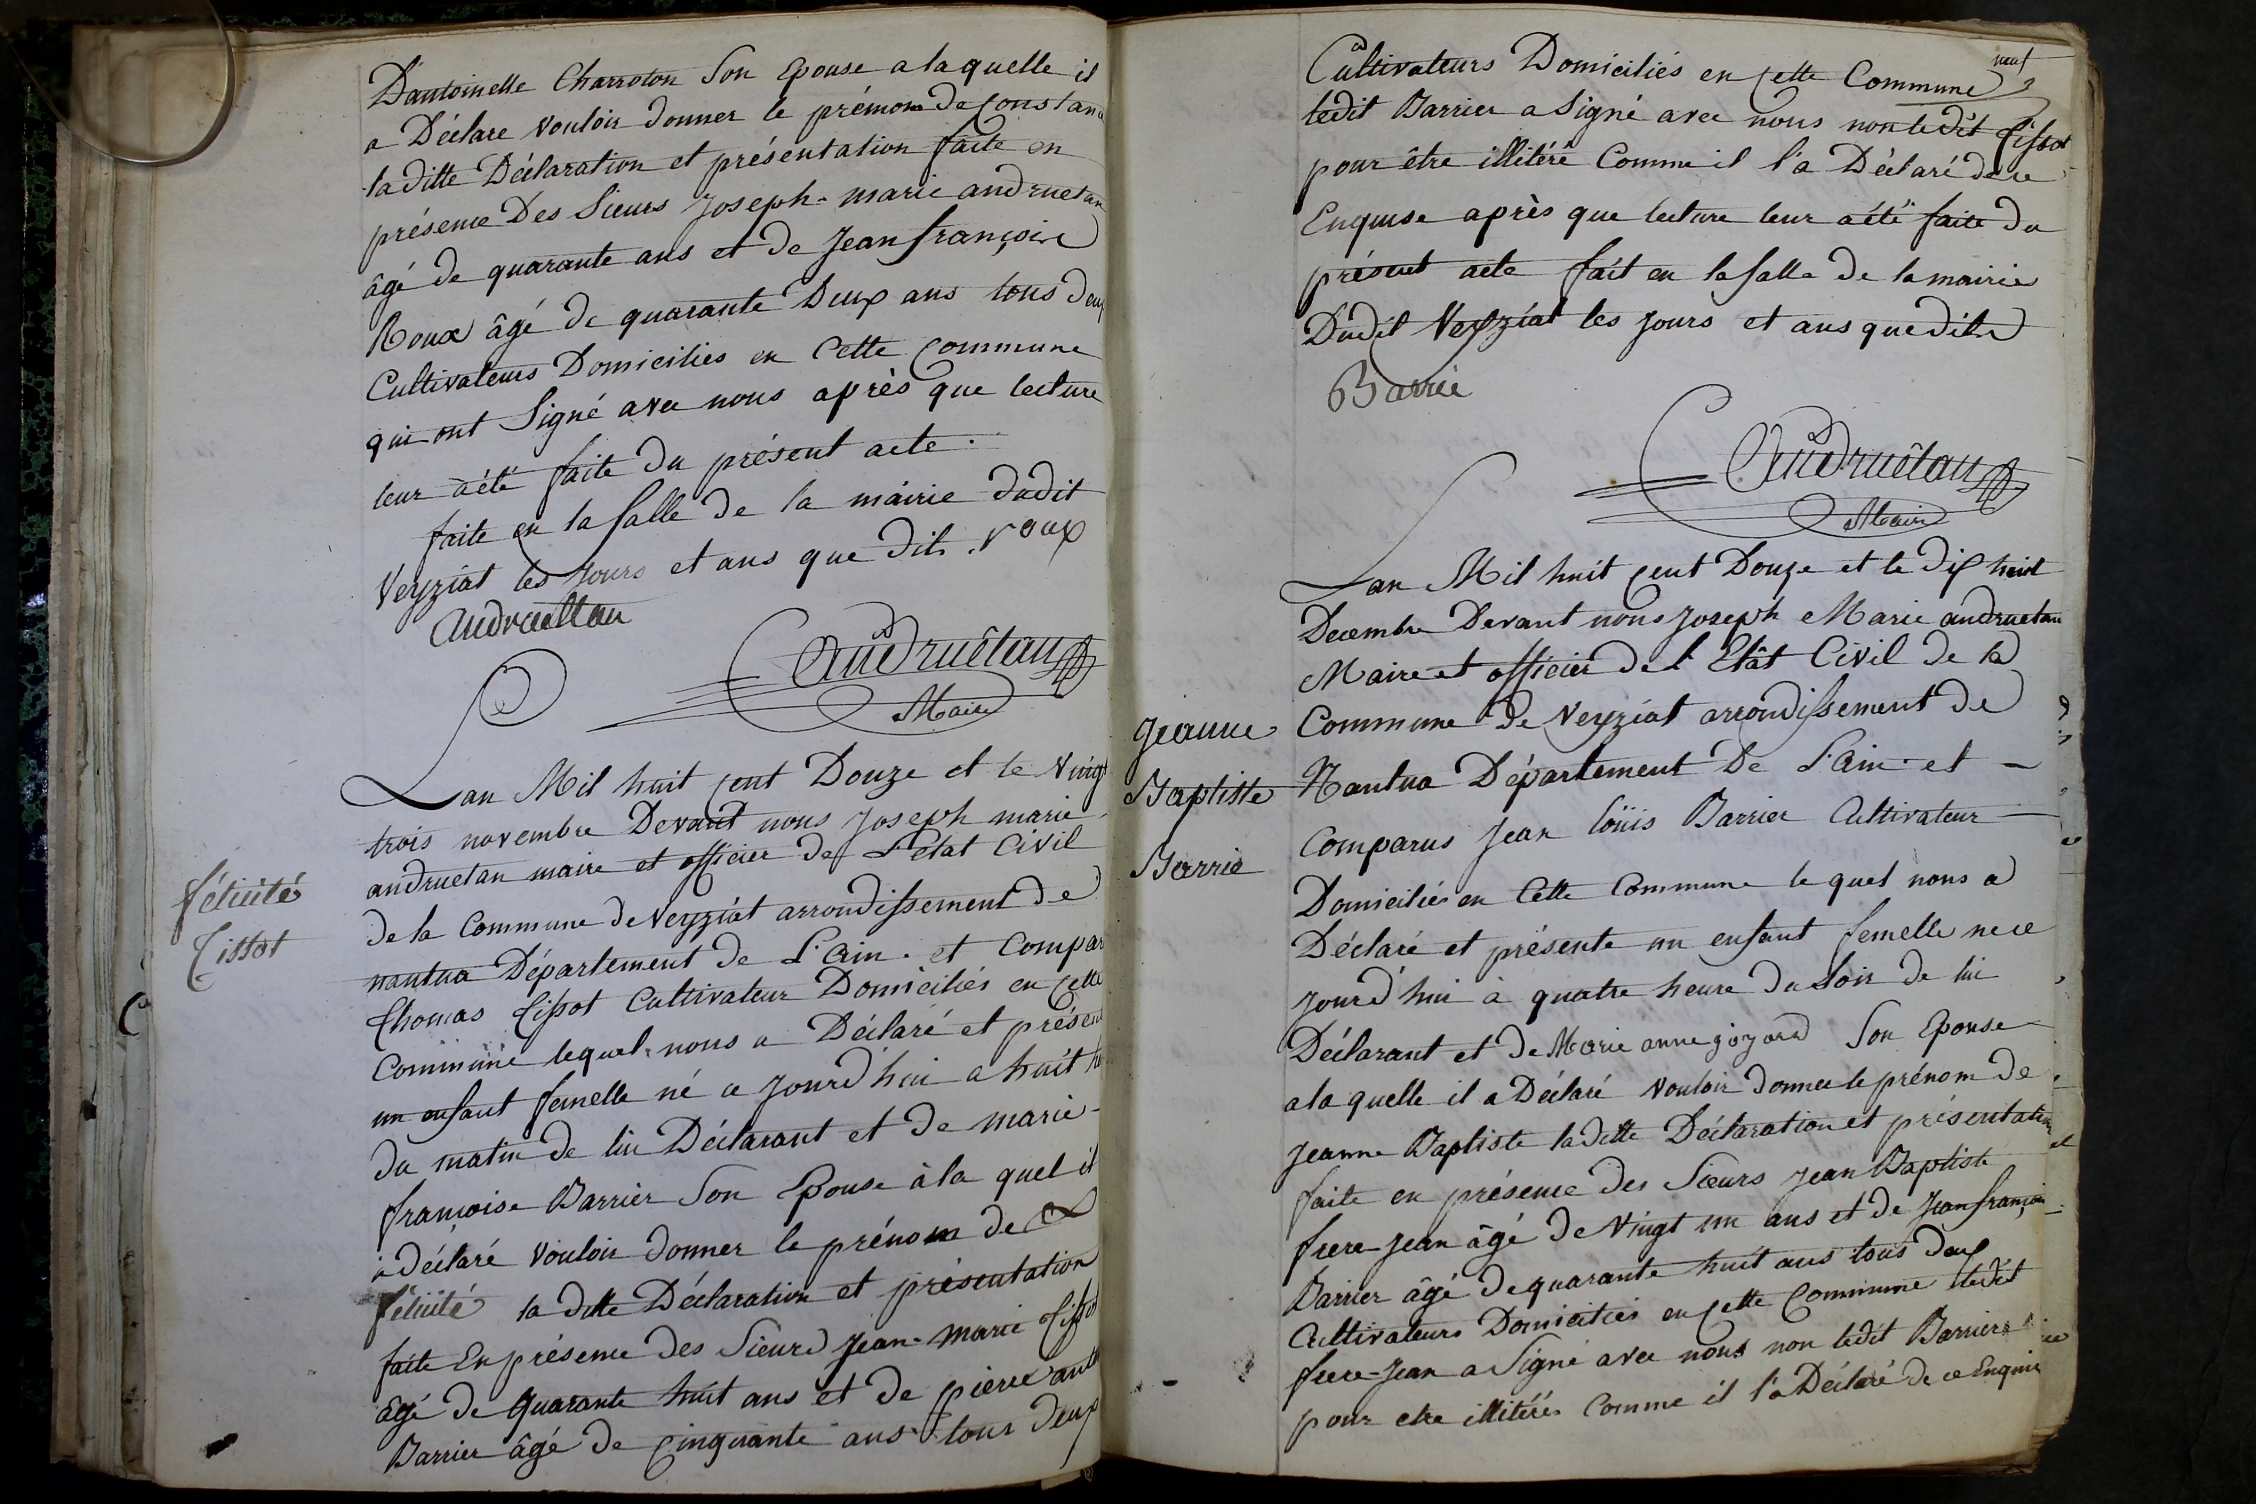 D'antoinelle Charroton Son Epouse a la quelle il
a Déclare vouloir donner le prémom de Constan
la ditte Déclaration et présentation faite en
présence Des Sieurs Joseph-marie andruetan
âgé de quarante ans et de Jean françoise
Roux âgé de quarante Deux ans tous deux
Cultivateurs Domiciliés en Cette Commune
qui ont Signé avec nous après que lecture
leur a été faite du présent acte.
faite en la Salle de la mairie dudit
Veyziat les Jours et ans que dits. roux
andruettan
Candruêtan
Maire
L'an Mil huit Cent Douze et le Vingt
trois novembre Devant nous Joseph marie
andruetan maire et officier de L'état Civil
félicité
de la Commune de Veyziat arrondissement de
Tissot
nantua Département de L'Ain. et Compar
Thomas Tissot Cultivateur Domiciliés en Cette
Commune lequel nous a Déclaré et présent
un enfant femelle né ce Jourd'hui a huit h
du matin de lui Déclarant et de marie
françoise Barrier Son Epouse à la quel il
a déclaré vouloir donner le prénom de
félicité la ditte Déclaration et présentation
faite En présence des Sieurs Jean-Marie Tissot
âgé de quarante huit ans et de pierre ant
Barrier âgé de Cinquante ans tous deux
neuf
Cultivateurs Domiciliés en Cette Commune
ledit Barrier a Signé avec nous non ledit Tissot
pour être illitéré Comme il l'a Déclaré de ce
Enquise après que lecture leur a été faite du
présent acte fait en la Salle de la mairie
Dudit Veyziat les Jours et ans que dits
Barrié
Candruêtan
Maire
L'an Mil huit Cent Douze et le dix huit
Decembre Devant nous Joseph Marie andruetan
Maire et officier de l'Etât Civil de la
Jeanne
Commune de Veyziat arrondissement de
Baptiste
Nantua Département De L'Ain. et
Barrié
Comparus Jean loüis Barrier Cultivateur
Domiciliés en Cette Commune le quel nous a
Déclaré et présente un enfant femelle ne ce
Jourd'hui à quatre heure du Soir de lui
Déclarant et de Marie anne goyard Son Epouse
a la quelle il a Déclaré Vouloir donner le prénom de
Jeanne Baptiste la ditte Déclaration et présentation
faite en présence des Sieurs Jean Baptiste
frere-jean âgé de Vingt un ans et de Jean françoi
Barrier âgé de quarante huit ans tous deux
Cultivateurs Domiciliés en Cette Commune ledit
frere-Jean a Signé avec nous non ledit Barrier
pour etre illitérés Comme il l'a Déclaré de ce Enquis